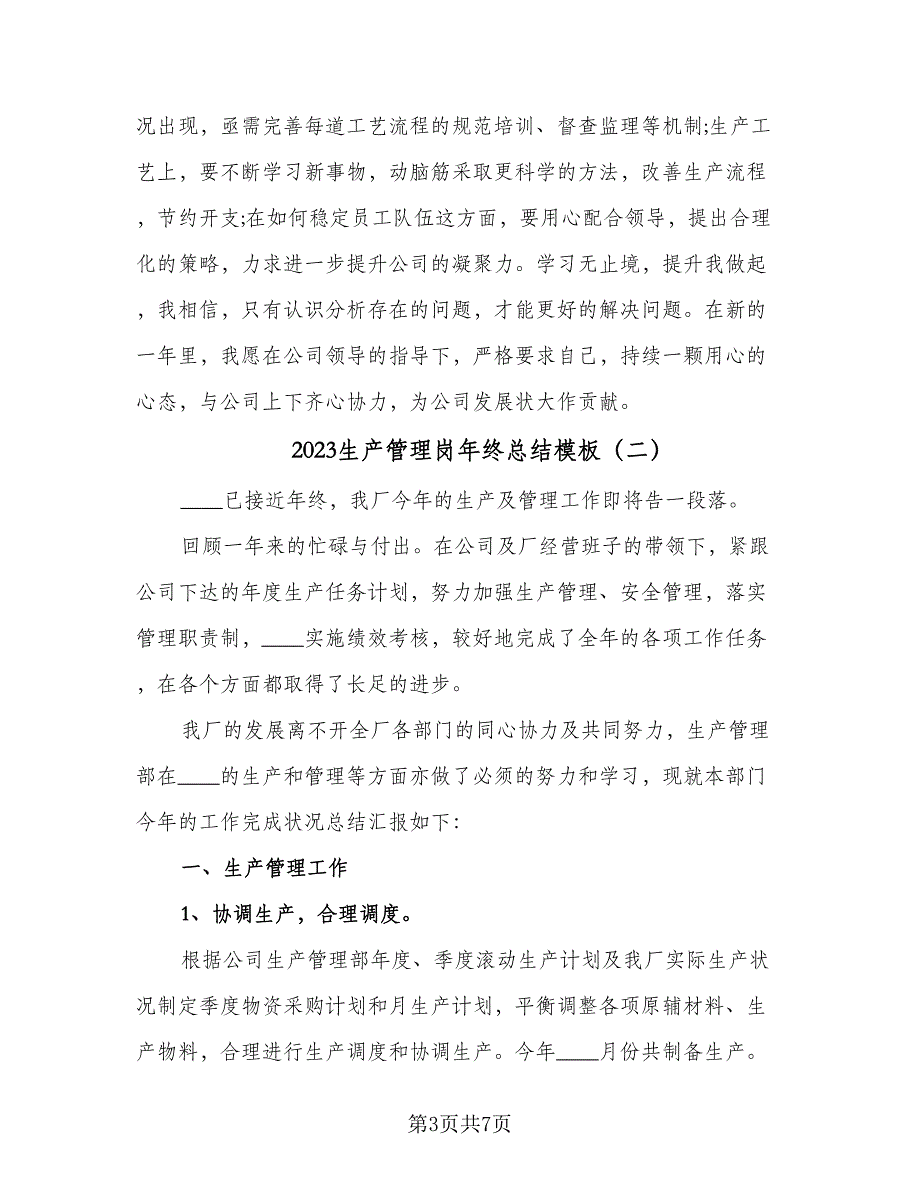 况出现，亟需完善每道工艺流程的规范培训、督查监理等机制;生产工
艺上，要不断学习新事物，动脑筋采取更科学的方法，改善生产流程
，节约开支;在如何稳定员工队伍这方面，要用心配合领导，提出合理
化的策略，力求进一步提升公司的凝聚力。学习无止境，提升我做起
，我相信，只有认识分析存在的问题，才能更好的解决问题。在新的
一年里，我愿在公司领导的指导下，严格要求自己，持续一颗用心的
心态，与公司上下齐心协力，为公司发展状大作贡献。
2023生产管理岗年终总结模板（二）
____已接近年终，我厂今年的生产及管理工作即将告一段落。
回顾一年来的忙碌与付出。在公司及厂经营班子的带领下，紧跟
公司下达的年度生产任务计划，努力加强生产管理、安全管理，落实
管理职责制，____实施绩效考核，较好地完成了全年的各项工作任务
，在各个方面都取得了长足的进步。
我厂的发展离不开全厂各部门的同心协力及共同努力，生产管理
部在____的生产和管理等方面亦做了必须的努力和学习，现就本部门
今年的工作完成状况总结汇报如下：
一、生产管理工作
1、协调生产，合理调度。
根据公司生产管理部年度、季度滚动生产计划及我厂实际生产状
况制定季度物资采购计划和月生产计划，平衡调整各项原辅材料、生
产物料，合理进行生产调度和协调生产。今年____月份共制备生产。
第3页共7页